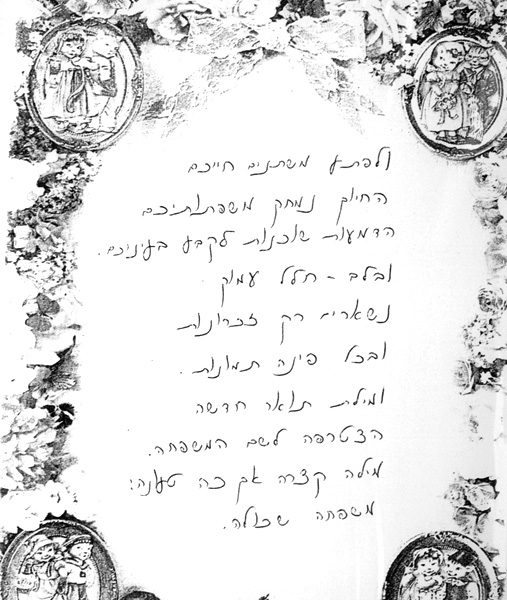 ולפתע משתנים חייכם
החיוך נמחק משפתותיכם
הדמעות שוכנות לקבע בעיניכם.
ובלב - חלל עמוק
נשארים רק זכרונות
ובכל פינה תמונות.
ומילת תואר חדשה
הצטרפה לשם המשפחה.
מילה קצרה אך כה טעונה:
משפחה שכולה.